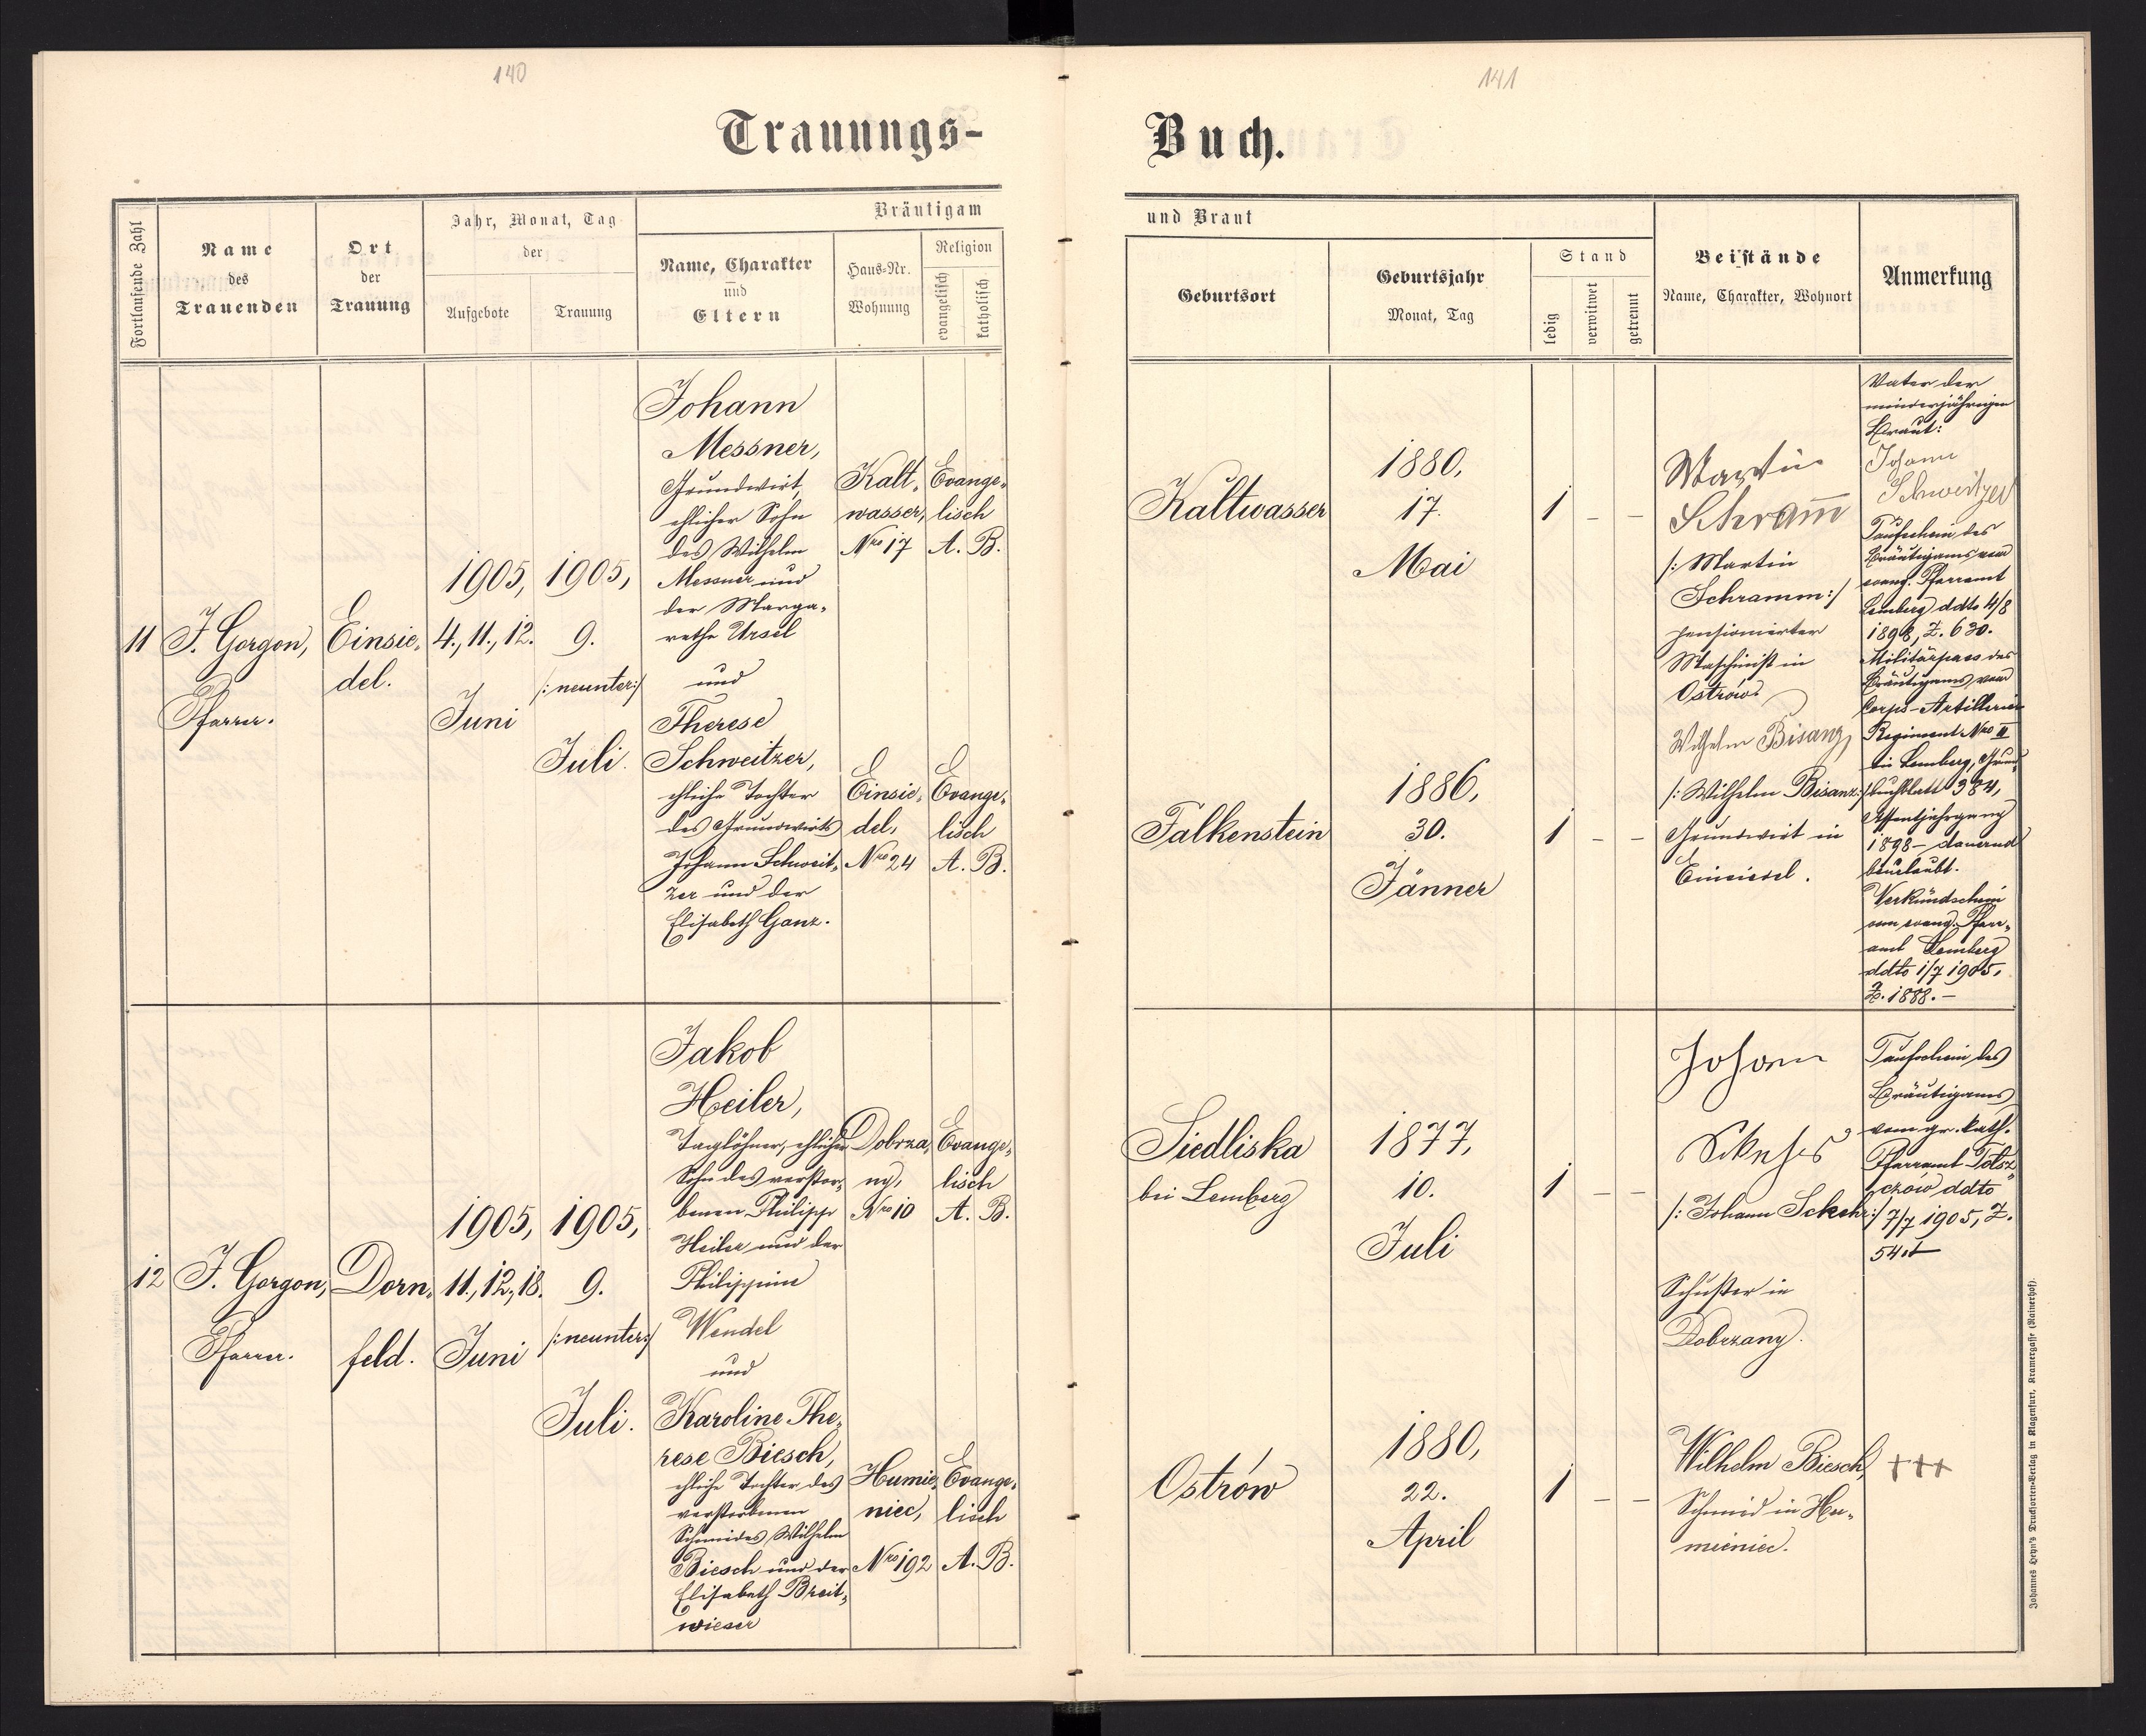 140
141
Trauungs-
Buch.
Fortlaufende Zahl
Name
des
Trauenden
Ort
der
Trauung
Jahr, Monat, Tag
der
Aufgebote
Trauung
Bräutigam
Name, Charakter
und
Eltern
Haus-Nr.
Wohnung
Religion
evangelisch
katholisch
und Braut
Geburtsort
Geburtsjahr
Monat, Tag
Stand
ledig
verwitwet
getrennt
Beistände
Name, Charakter, Wohnort
Anmerkung
11
J. Gorgon,
Pfarrer.
Einsie„
del.
1905,
4., 11., 12.
Juni
1905,
9.
/:neunter:/
Juli.
Johann
Messner,
Grundwirt,
ehlicher Sohn
des Wilhelm
Messner und
der Marga„
rethe Ursel
und
Therese
Schweitzer,
ehliche Tochter
des Grundwirts
Johann Schweit„
zer und der
Elisabeth Ganz.
Kalt„
wasser,
Nro 17
Evange„
lisch
A. B.
Einsie„
del,
Nro 24
Evange„
lisch
A. B.
Kaltwasser
1880,
17.
Mai
1 – –
Falkenstein
1886,
30.
Jänner
1 – –
Martin
Schram̅
/: Martin
Schramm:/
pensionierter
Maschinist in
Ostrów.
Wilhelm Bisanz,
/: Wilhelm Bisanz:/
Grundwirt in
Einsiedel.
Vater der
minderjährigen
Braut:
Johann
Schweitzer
Taufschein des
Bräutigams vom
evang. Pfarramt
Lemberg ddto 4/8
1898, Z. 630.
Militärpass des
Bräutigams vom
Corps-Artillerie
Regiment Nro 11
in Lemberg, Grund„
buchblatt 384,
Assentjahrgang
1898 – dauernd
beurlaubt.
Verkündschein
vom evang. Pfarr„
amt Lemberg
ddto 1/7 1905,
Z. 1888. –
12
J. Gorgon,
Pfarrer.
Dorn„
feld.
1905,
11., 12., 18.
Juni
1905,
9.
/:neunter:/
Juli.
Jakob
Heiler,
Taglöhner, ehlicher
Sohn des verstor„
benen Philipp
Heiler und der
Philippine
Wendel
und
Karoline The„
rese Biesch,
ehliche Tochter des
verstorbenen
Schmiedes Wilhelm
Biesch und der
Elisabeth Breit„
wieser
Dobrza„
ny,
Nro 10
Evange„
lisch
A. B.
Humie„
niec,
Nro 192
Evange„
lisch
A. B.
Siedliska
bei Lemberg
1877,
10.
Juli
1 – –
Ostrów
1880,
22.
April
1 – –
Johann
/: Johann Sckehr:/
Schuster in
Dobrzany.
Wilhelm Biesch,
Schmied in Hu„
mieniec.
Taufschein des
Bräutigams
vom gr. kath.
Pfarramt Tolsz„
czów ddto
7/7 1905, Z.
54.
+++
Johannes Heyn's Drucksorten-Verlag in Klagenfurt, Kramergasse (Rainerhof).